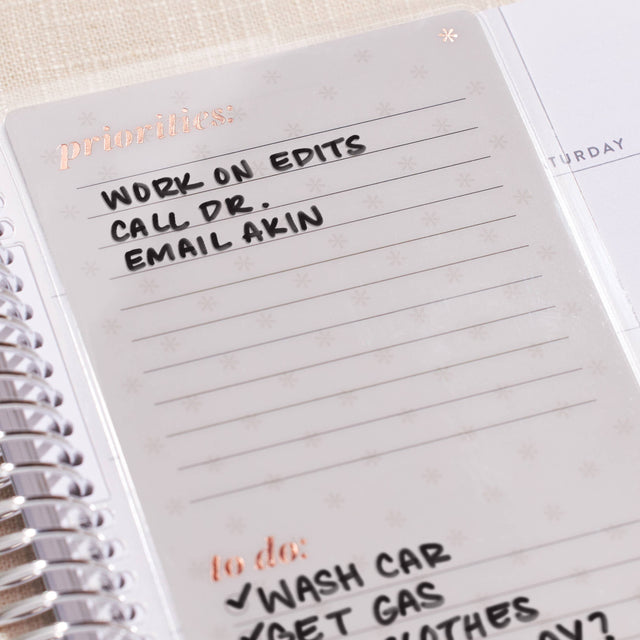 priorities:
WORK ON EDITS
CALL DR.
EMAIL AKIN
TURDAY
to do:
✓WASH CAR
✓GET GAS